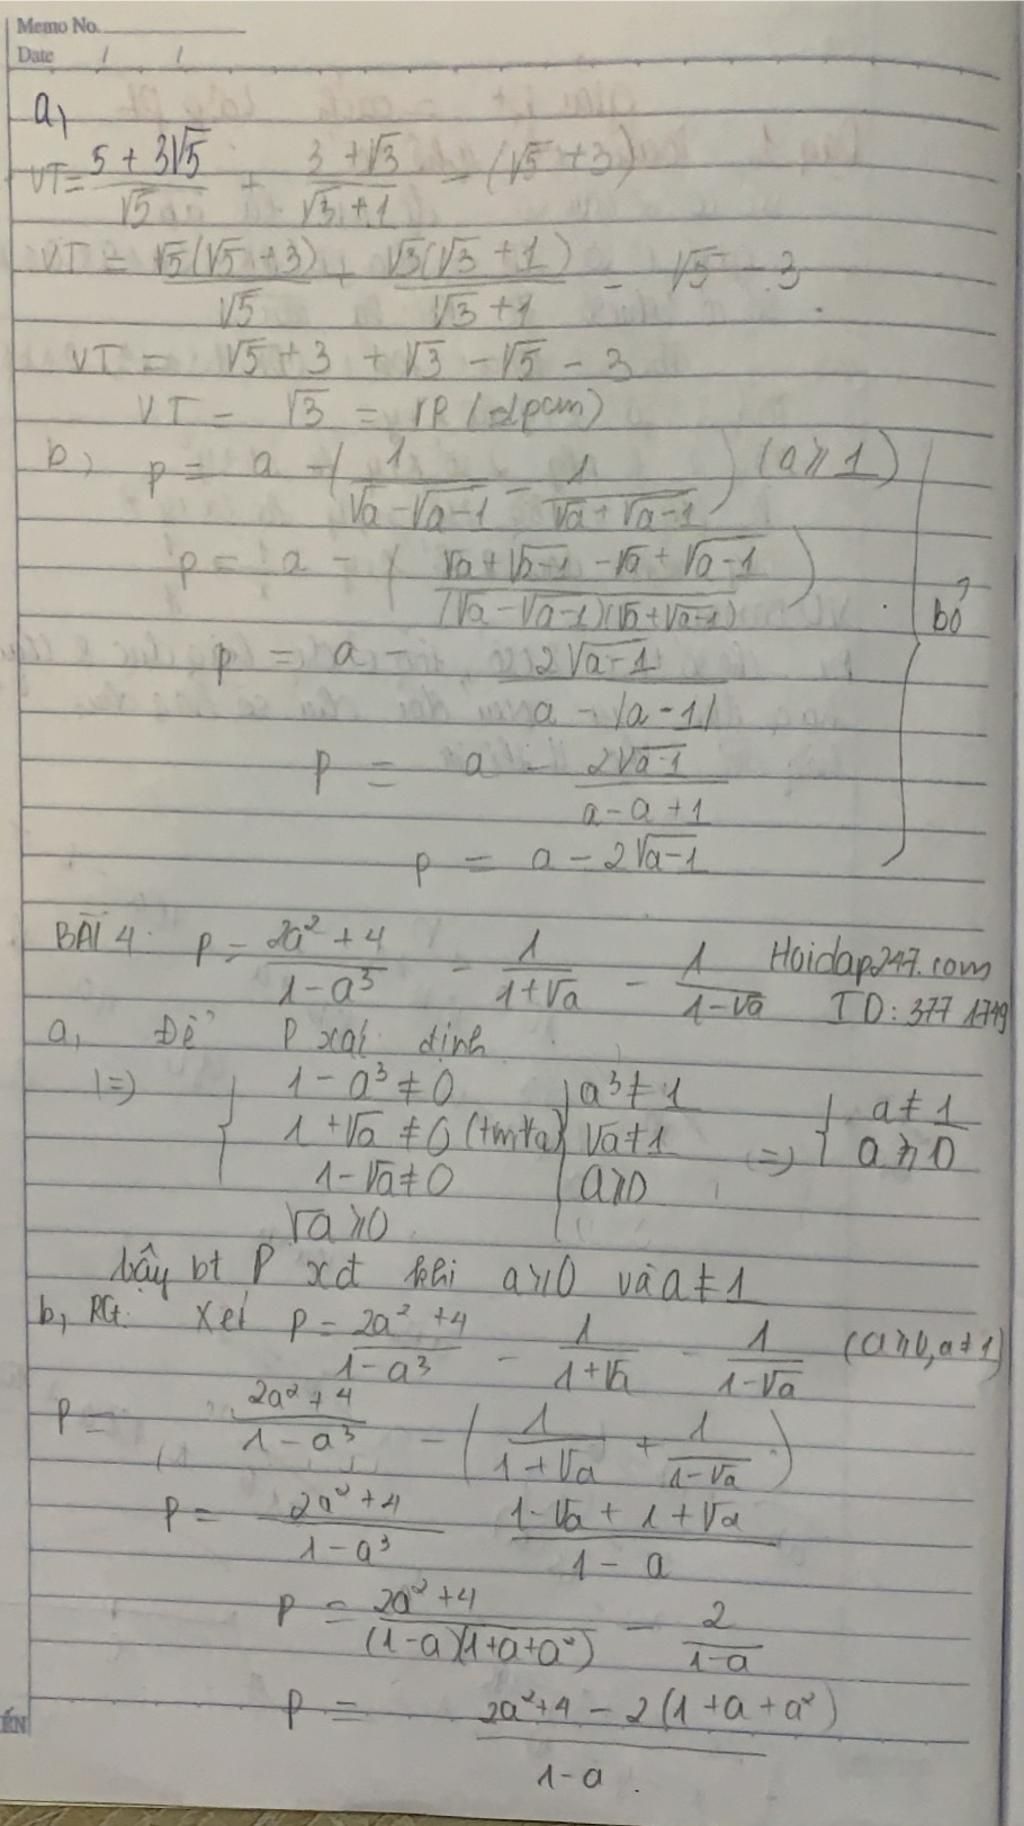 Memo No.
Date / /
a,
VT = (5 + 3√5)/√5 + (3 + √3)/(√3 + 1) - (√5 + 3)
VT = √5(√5 + 3)/√5 + √3(√3 + 1)/(√3 + 1) - √5 - 3
VT = √5 + 3 + √3 - √5 - 3
VT = √3 = VP (đpcm)
b, p = a - (1/(√a - √a-1) - 1/(√a + √a-1)) (a ⩾ 1)
p = a - ((√a + √a-1 - √a + √a-1)/((√a - √a-1)(√a + √a-1)))
bỏ
p = a - 2√a-1/(a - (a - 1))
p = a - 2√a-1/(a - a + 1)
p = a - 2√a-1
BÀI 4. P = (2a² + 4)/(1 - a³) - 1/(1 + √a) - 1/(1 - √a) Hoidap247.com
ID: 3771749
a, Để P xác định
(=) { 1 - a³ ≠ 0 { a³ ≠ 1 { a ≠ 1
1 + √a ≠ 0 (tm∀a) √a ≠ 1 (=) a ⩾ 0
1 - √a ≠ 0 a ⩾ 0
√a ⩾ 0
Vậy bt P xđ khi a ⩾ 0 và a ≠ 1
b, RG: Xét P = (2a² + 4)/(1 - a³) - 1/(1 + √a) - 1/(1 - √a) (a ⩾ 0, a ≠ 1)
P = (2a² + 4)/(1 - a³) - (1/(1 + √a) + 1/(1 - √a))
P = (2a² + 4)/(1 - a³) (1 - √a + 1 + √a)/(1 - a)
P = (2a² + 4)/((1 - a)(1 + a + a²)) - 2/(1 - a)
P = (2a² + 4 - 2(1 + a + a²))/(1 - a)